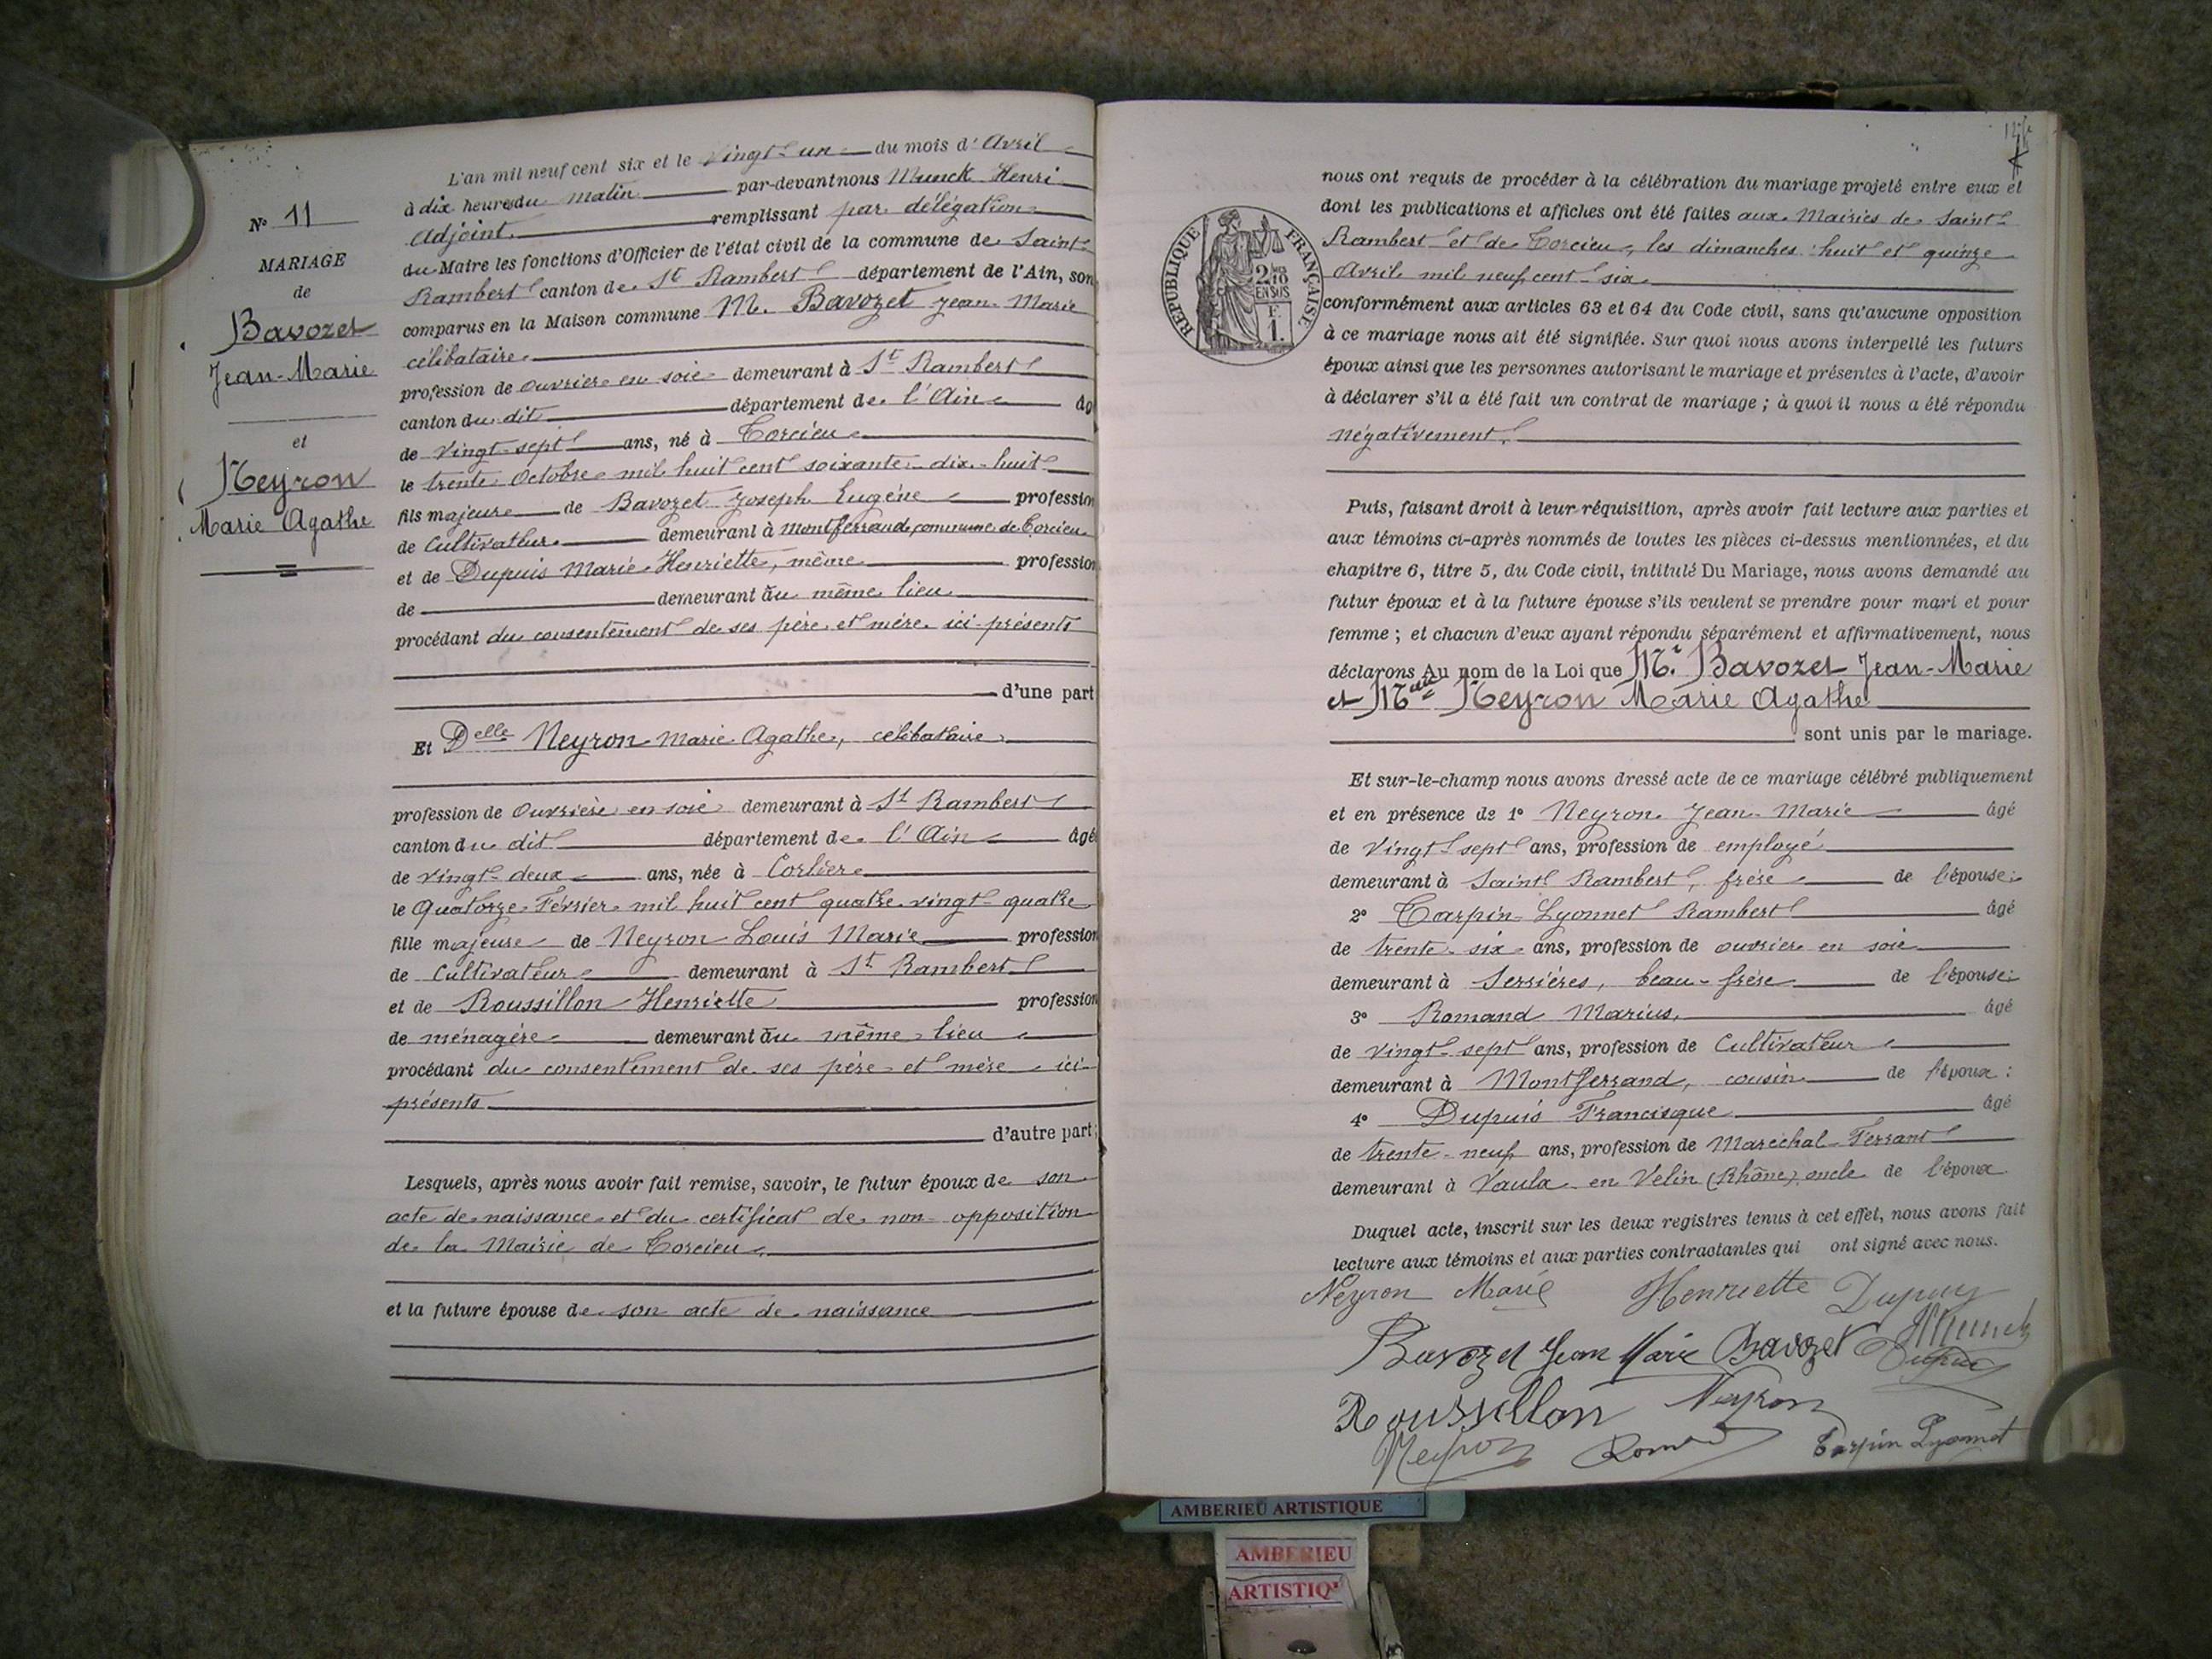 N° 11
MARIAGE
de
Bavozet
Jean-Marie
et
Neyron
Marie Agathe
L'an mil neuf cent six et le vingt-un du mois d'Avril
à dix heures du matin par-devant nous Munck Henri
Adjoint remplissant par délégation
du Maire les fonctions d'Officier de l'état civil de la commune de Saint-
Rambert canton de St Rambert département de l'Ain, son
comparus en la Maison commune M. Bavozet Jean-Marie
célibataire
profession de ouvrier en soie demeurant à St Rambert
canton du dit département de l'Ain âg
de vingt-sept ans, né à Torcieu
le trente Octobre mil huit cent soixante-dix-huit
fils majeur de Bavozet Joseph Eugène profession
de Cultivateur demeurant à Montferrand, commune de Torcieu
et de Dupuis Marie Henriette, même profession
de demeurant au même lieu
procédant du consentement de ses père et mère ici-présents
d'une part
Et Delle Neyron Marie Agathe, célibataire
profession de Ouvrière en soie demeurant à St Rambert
canton du dit département de l'Ain âgé
de vingt-deux ans, née à Corlier
le Quatorze Février mil huit cent quatre-vingt-quatre
fille majeure de Neyron Louis Marie profession
de Cultivateur demeurant à St Rambert
et de Roussillon Henriette profession
de ménagère demeurant au même lieu
procédant du consentement de ses père et mère ici-
présents
d'autre part;
Lesquels, après nous avoir fait remise, savoir, le futur époux de son
acte de naissance et du certificat de non-opposition
de la Mairie de Torcieu,
et la future épouse de son acte de naissance
RÉPUBLIQUE FRANÇAISE
2/10
EN SUS
F.
1.
nous ont requis de procéder à la célébration du mariage projeté entre eux et
dont les publications et affiches ont été faites aux Mairies de Saint-
Rambert et de Torcieu, les dimanches huit et quinze
Avril mil neuf cent six
conformément aux articles 63 et 64 du Code civil, sans qu'aucune opposition
à ce mariage nous ait été signifiée. Sur quoi nous avons interpellé les futurs
époux ainsi que les personnes autorisant le mariage et présentes à l'acte, d'avoir
à déclarer s'il a été fait un contrat de mariage ; à quoi il nous a été répondu
négativement.
Puis, faisant droit à leur réquisition, après avoir fait lecture aux parties et
aux témoins ci-après nommés de toutes les pièces ci-dessus mentionnées, et du
chapitre 6, titre 5, du Code civil, intitulé Du Mariage, nous avons demandé au
futur époux et à la future épouse s'ils veulent se prendre pour mari et pour
femme ; et chacun d'eux ayant répondu séparément et affirmativement, nous
déclarons Au nom de la Loi que Mr Bavozet Jean-Marie
et Melle Neyron Marie Agathe
sont unis par le mariage.
Et sur-le-champ nous avons dressé acte de ce mariage célébré publiquement
et en présence de 1° Neyron Jean-Marie âgé
de Vingt-sept ans, profession de employé
demeurant à Saint Rambert, frère de l'épouse;
2° Tarpin-Lyonnet Rambert âgé
de trente-six ans, profession de ouvrier en soie
demeurant à Serrières, beau-frère de l'épouse;
3° Romand Marius, âgé
de vingt-sept ans, profession de Cultivateur
demeurant à Montferrand, cousin de l'époux;
4° Dupuis Francisque âgé
de trente-neuf ans, profession de Maréchal-Ferrant
demeurant à Vaulx en Velin (Rhône) oncle de l'époux
Duquel acte, inscrit sur les deux registres tenus à cet effet, nous avons fait
lecture aux témoins et aux parties contractantes qui ont signé avec nous.
Neyron Marie Henriette Dupuy
Bavozet Jean Marie Bavozet HMunck
Dupuis
Roussillon Neyron
Neyron Romand Tarpin Lyonnet
AMBERIEU ARTISTIQUE
AMBERIEU
ARTISTIQ